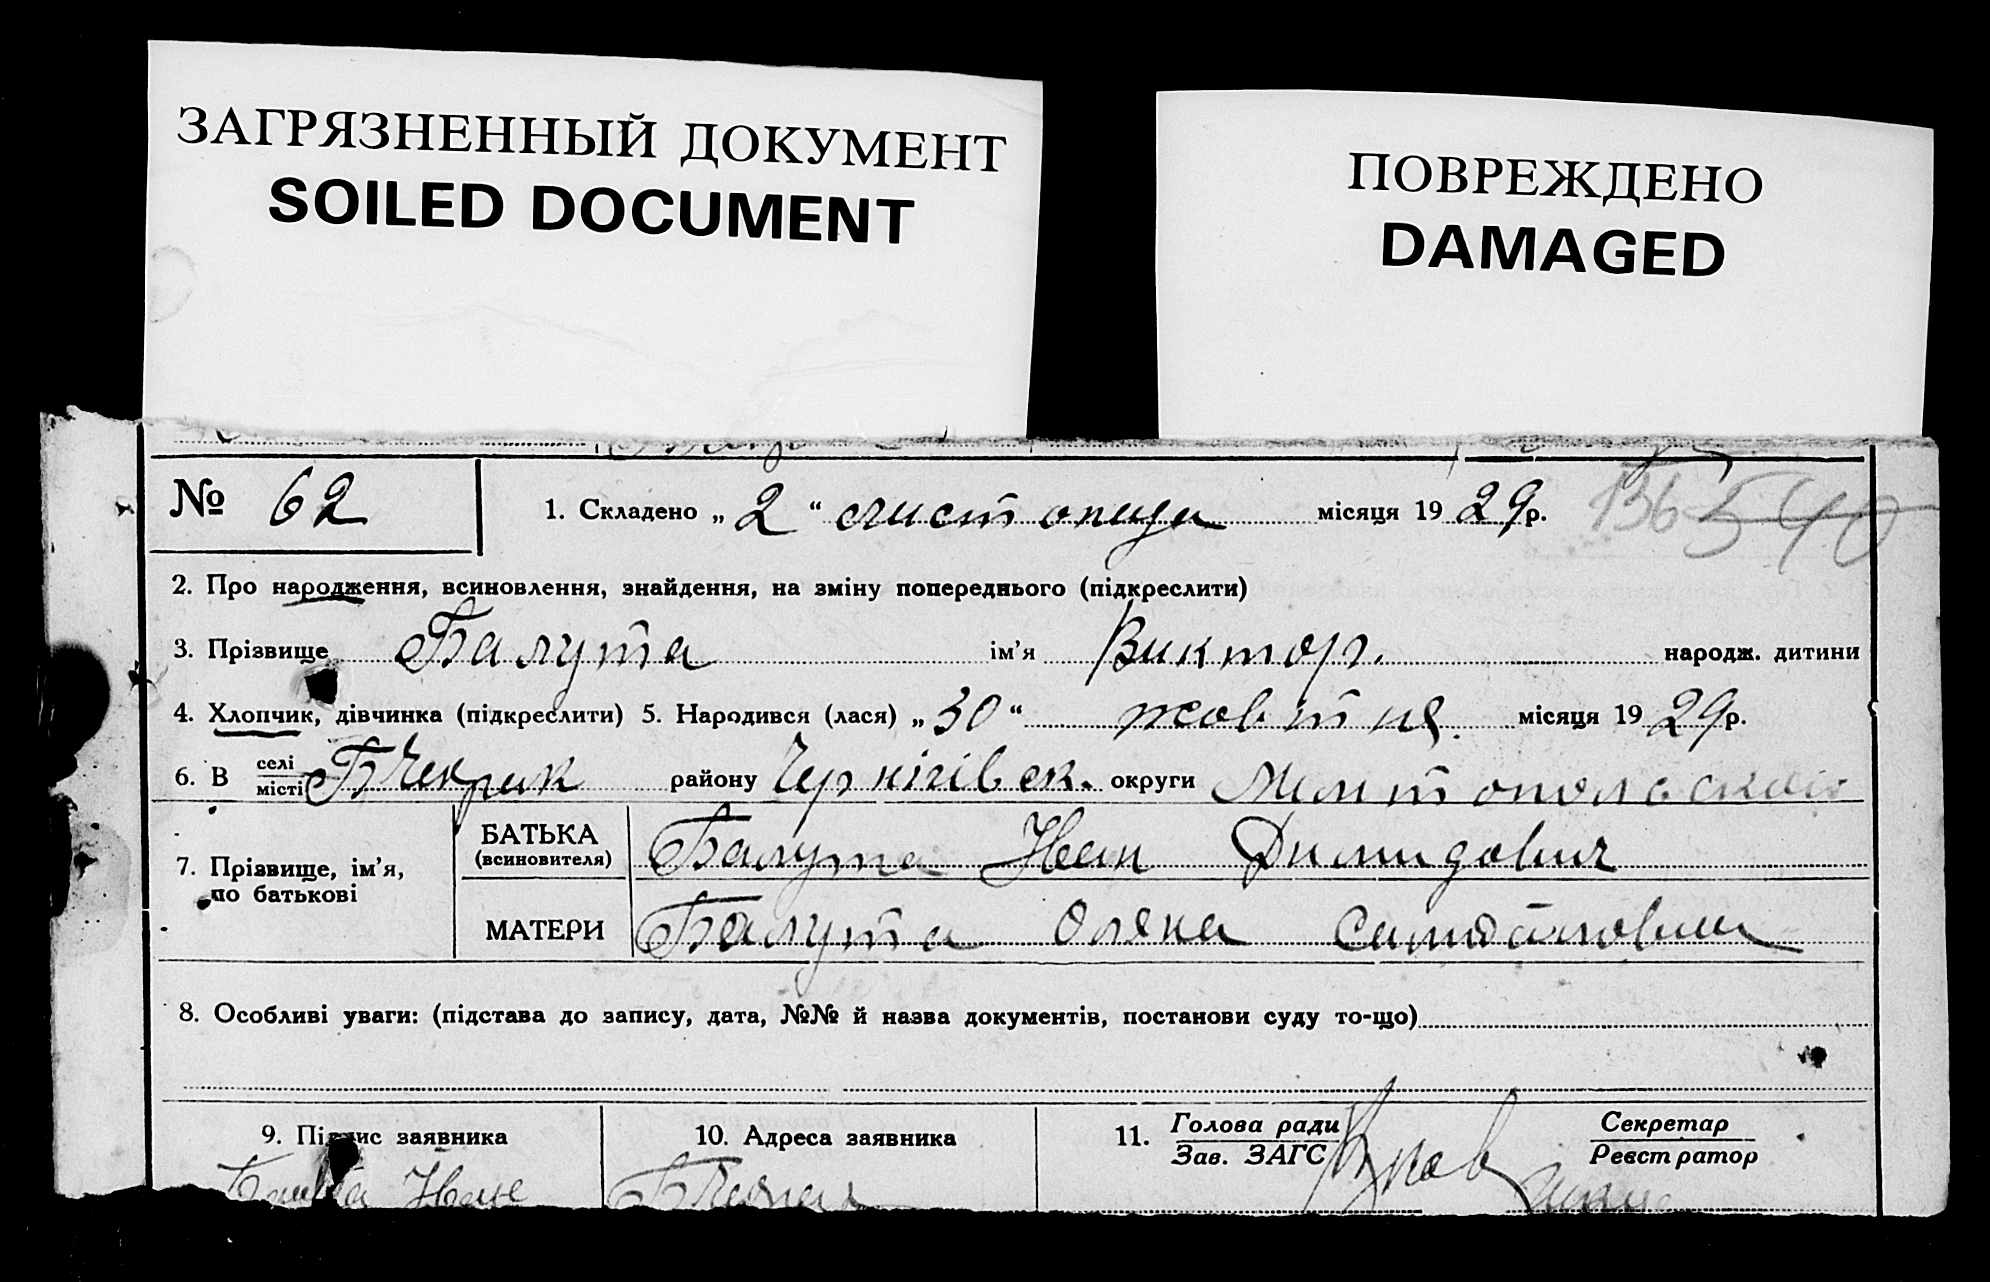 ЗАГРЯЗНЕННЫЙ ДОКУМЕНТ
SOILED DOCUMENT
ПОВРЕЖДЕНО
DAMAGED
№ 62
1. Складено „2“ листопада місяця 1929р.
136 540
2. Про народження, всиновлення, знайдення, на зміну попереднього (підкреслити)
3. Прізвище Балута ім'я Виктор. народж. дитини
4. Хлопчик, дівчинка (підкреслити) 5. Народився (лася) „30“ жовтня місяця 1929р.
6. В селі місті Б Чекрак району Чернігівск. округи Мелитопольской
7. Прізвище, ім'я, по батькові
БАТЬКА (всиновителя) Балута Иван Димидович
МАТЕРИ Балута Оляна
8. Особливі уваги: (підстава до запису, дата, №№ й назва документів, постанови суду то-що)
9. Підпис заявника
10. Адреса заявника
11. Голова ради Зав. ЗАГС
Секретар Реєстратор
Балута Иван